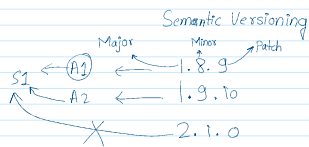 Semantic Versioning
Major Minor Patch
S1 A1 1.8.9
A2 1.9.10
2.1.0